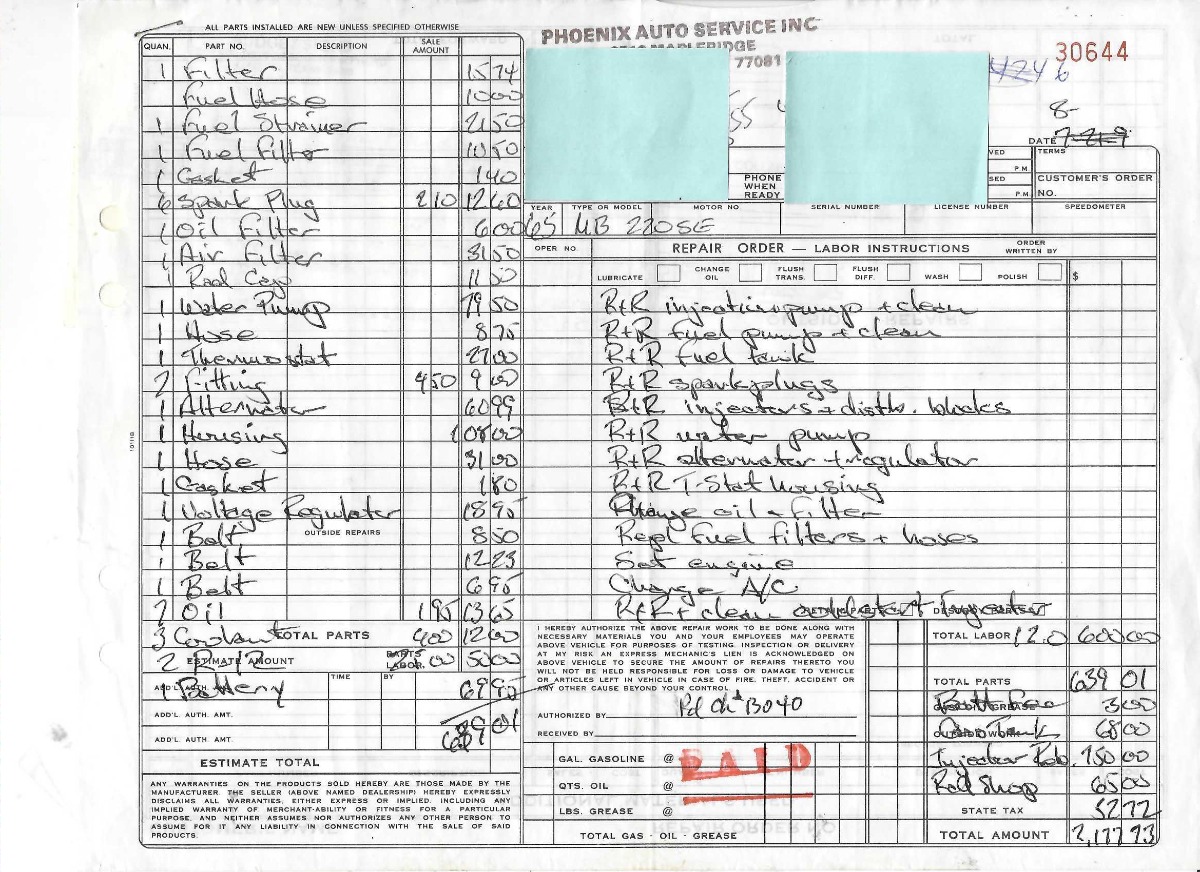 ALL PARTS INSTALLED ARE NEW UNLESS SPECIFIED OTHERWISE
QUAN. PART NO. DESCRIPTION SALE AMOUNT
1 Filter 15 74
Fuel Hose 10 00
1 Fuel Strainer 21 50
1 Fuel Filter 10 50
1 Gasket 1 40
6 Spark Plug 2 10 12 60
1 Oil Filter 6 00
1 Air Filter 31 50
1 Rad Cap 11 50
1 Water Pump 79 50
1 Hose 8 75
1 Thermostat 27 00
2 Fitting 4 50 9 00
1 Alternator 60 99
1 Housing 108 00
1 Hose 31 00
1 Gasket 1 80
1 Voltage Regulator 18 95
OUTSIDE REPAIRS
1 Belt 8 50
1 Belt 12 23
1 Belt 6 95
7 Oil 1 95 13 65
3 Coolant TOTAL PARTS 4 00 12 00
2 ESTIMATE AMOUNT PARTS LABOR. 50 00
ADD'L. AUTH. AMT. TIME BY
1 Battery 69 95
ADD'L. AUTH. AMT.
ADD'L. AUTH. AMT. 639 01
ESTIMATE TOTAL
ANY WARRANTIES ON THE PRODUCTS SOLD HEREBY ARE THOSE MADE BY THE
MANUFACTURER. THE SELLER (ABOVE NAMED DEALERSHIP) HEREBY EXPRESSLY
DISCLAIMS ALL WARRANTIES, EITHER EXPRESS OR IMPLIED, INCLUDING ANY
IMPLIED WARRANTY OF MERCHANT-ABILITY OR FITNESS FOR A PARTICULAR
PURPOSE, AND NEITHER ASSUMES NOR AUTHORIZES ANY OTHER PERSON TO
ASSUME FOR IT ANY LIABILITY IN CONNECTION WITH THE SALE OF SAID
PRODUCTS.
PHOENIX AUTO SERVICE INC
MAPLERIDGE
77081
30644
4246
8-
DATE 7-21-9
P.M.
P.M.
TERMS
CUSTOMER'S ORDER NO.
PHONE WHEN READY
YEAR TYPE OR MODEL MOTOR NO SERIAL NUMBER LICENSE NUMBER SPEEDOMETER
65 MB 220SE
OPER NO. REPAIR ORDER — LABOR INSTRUCTIONS ORDER WRITTEN BY
LUBRICATE CHANGE OIL FLUSH TRANS. FLUSH DIFF. WASH POLISH $
R+R injection pump + clean
R+R fuel pump + clean
R+R fuel tank
R+R spark plugs
R+R injectors + distb. blocks
R+R water pump
R+R alternator + regulator
R+R T-Stat housing
Change oil + filter
Repl fuel filters + hoses
Set engine
Change A/C
R+R + clean
I HEREBY AUTHORIZE THE ABOVE REPAIR WORK TO BE DONE ALONG WITH
NECESSARY MATERIALS YOU AND YOUR EMPLOYEES MAY OPERATE
ABOVE VEHICLE FOR PURPOSES OF TESTING. INSPECTION OR DELIVERY
AT MY RISK AN EXPRESS MECHANIC'S LIEN IS ACKNOWLEDGED ON
ABOVE VEHICLE TO SECURE THE AMOUNT OF REPAIRS THERETO YOU
WILL NOT BE HELD RESPONSIBLE FOR LOSS OR DAMAGE TO VEHICLE
OR ARTICLES LEFT IN VEHICLE IN CASE OF FIRE. THEFT. ACCIDENT OR
ANY OTHER CAUSE BEYOND YOUR CONTROL
AUTHORIZED BY Pd Ck# 13040
RECEIVED BY
GAL. GASOLINE @
PAID
QTS. OIL @
LBS. GREASE @
TOTAL GAS - OIL - GREASE
TOTAL LABOR 12.0 600 00
TOTAL PARTS 639 01
3 00
68 00
Injector Reb. 750 00
Rad Shop 65 00
STATE TAX 52 72
TOTAL AMOUNT 2,177 73